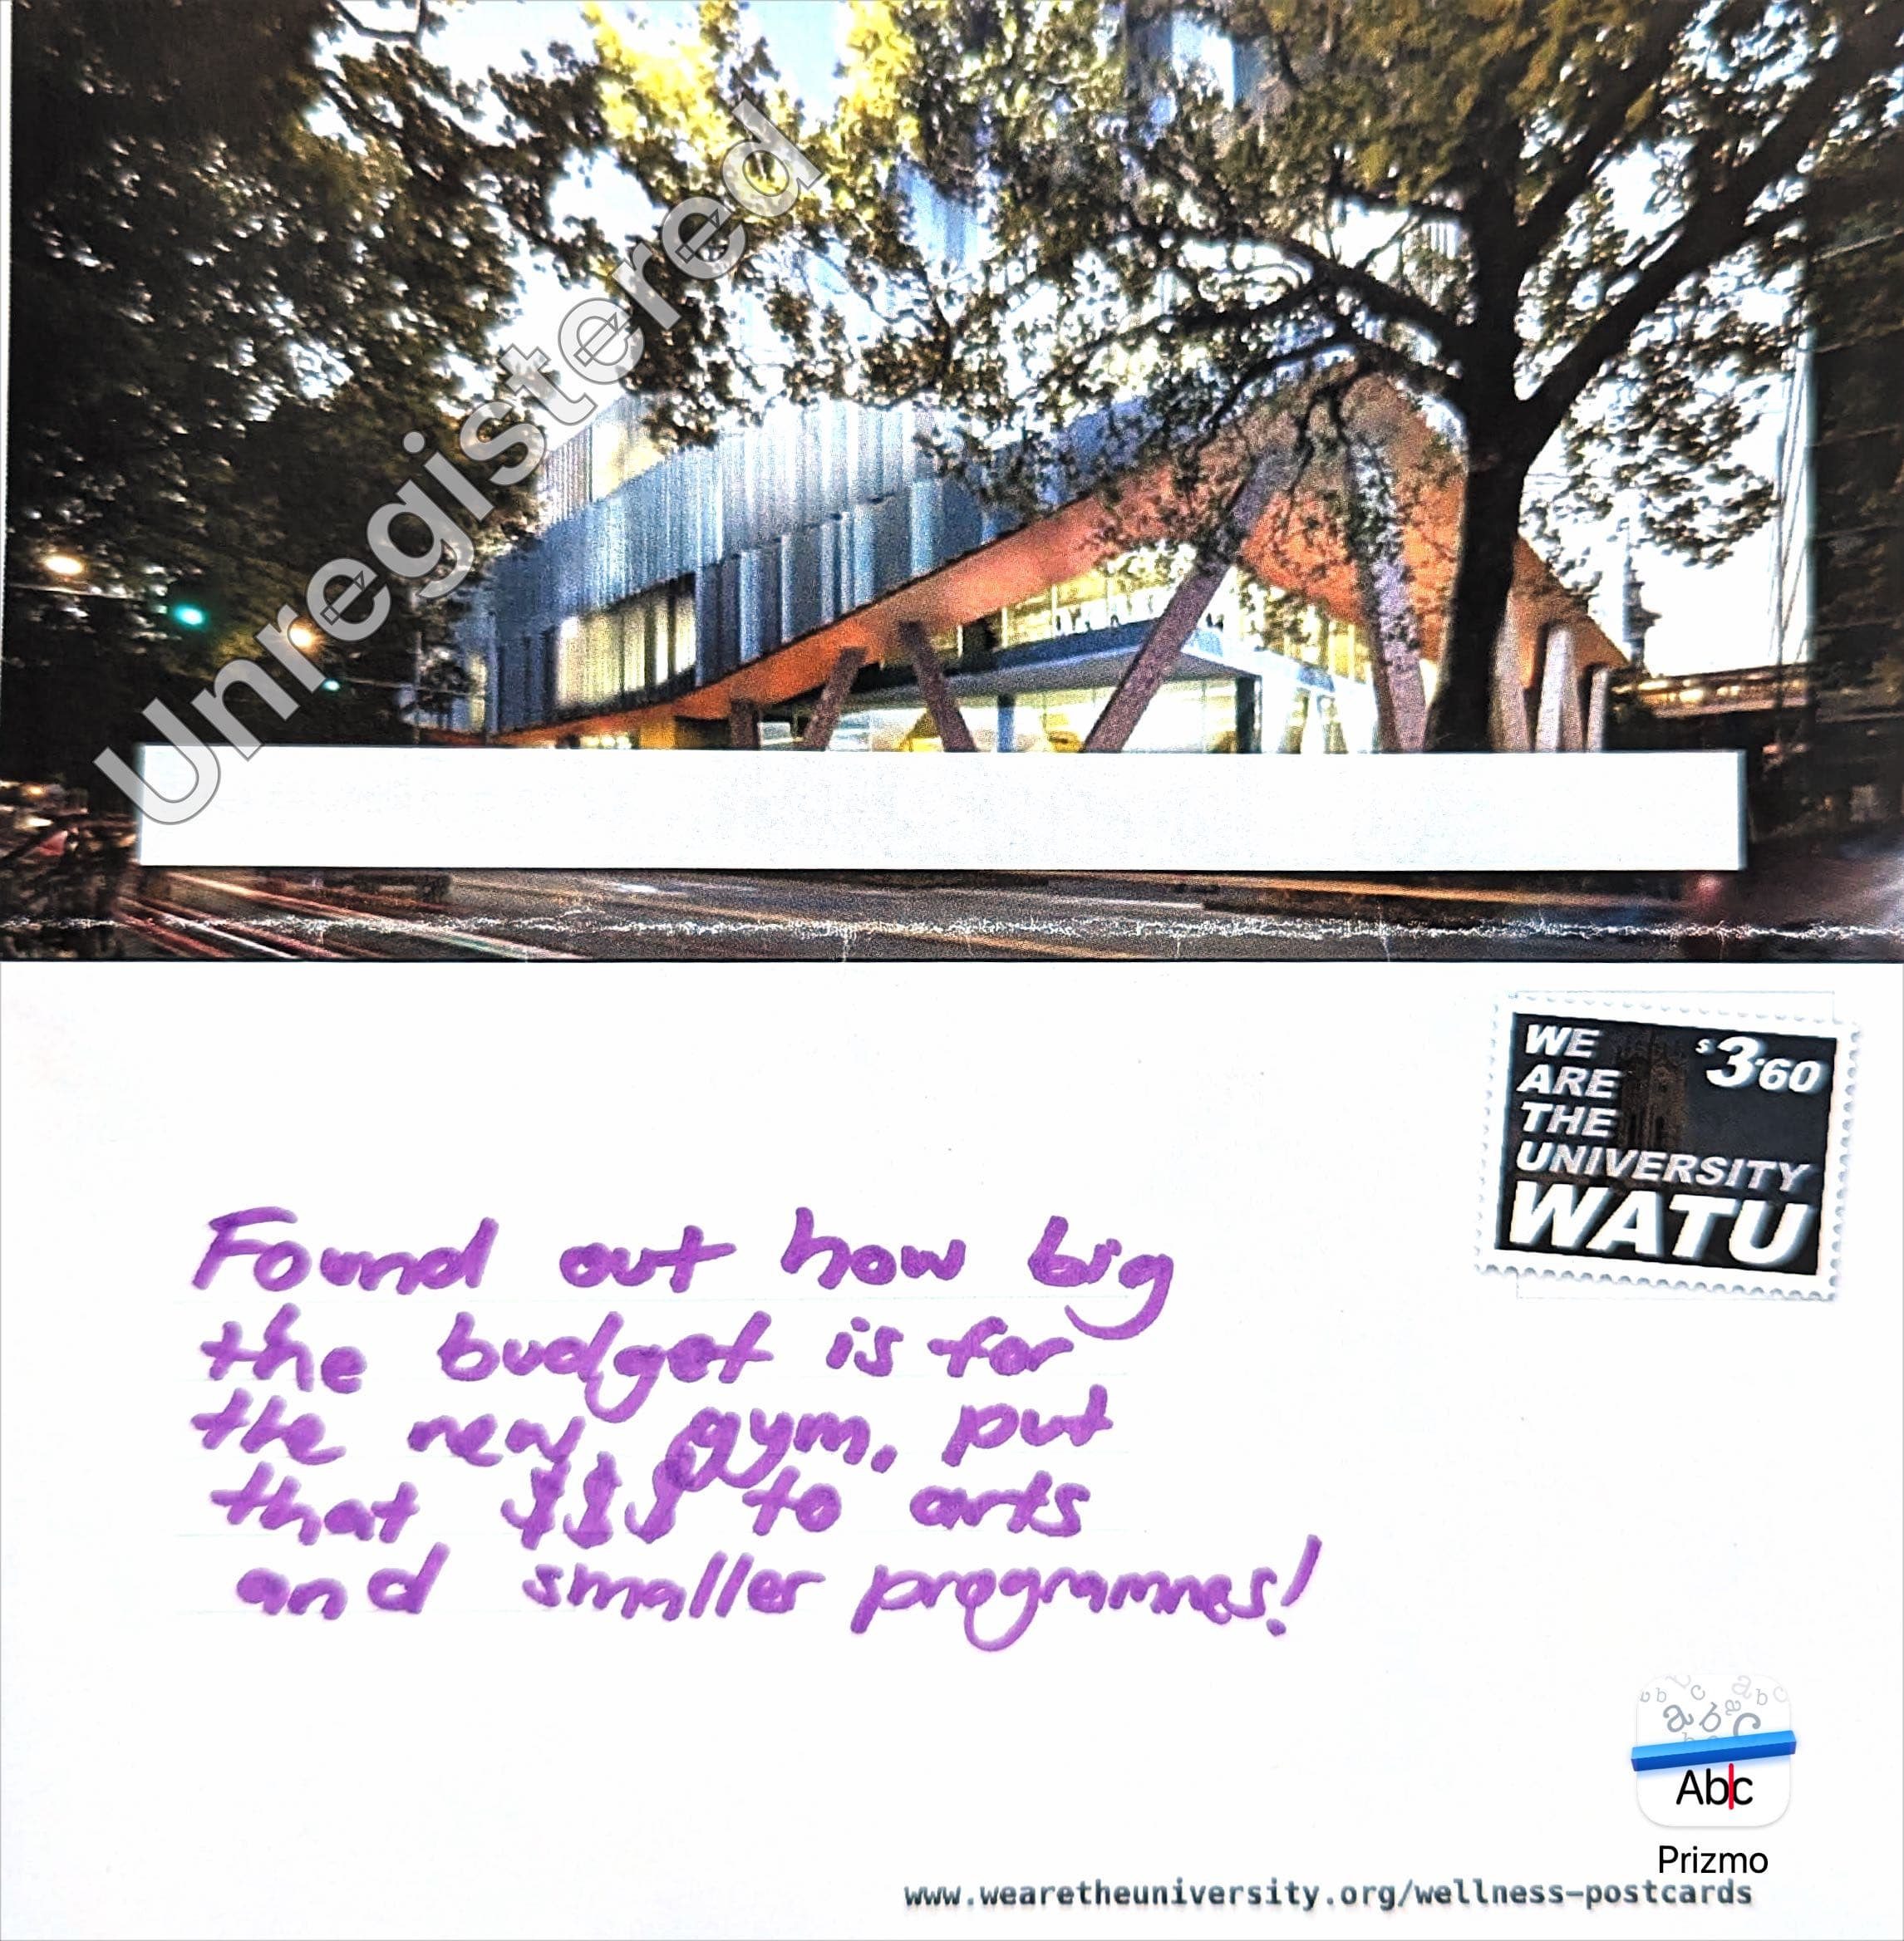 Unregistered
WE
ARE
THE
UNIVERSITY
WATU
$3.60
Found out how big
the budget is for
the new gym, put
that $$$ to arts
and smaller programmes!
abc
Abc
Prizmo
www.wearetheuniversity.org/wellness-postcards